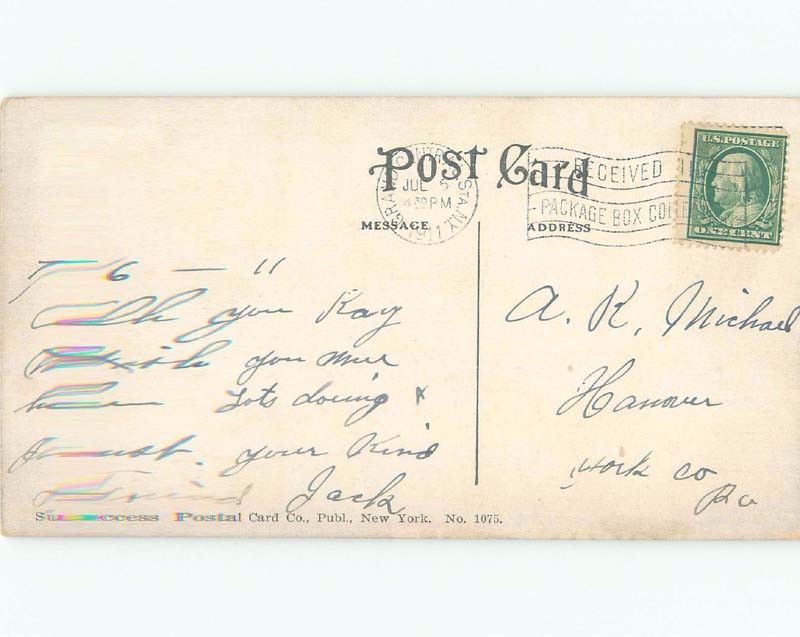 Post Card
GRAND CENTRAL STA. N.Y.
JUL 5
4 30 PM
1911
RECEIVED
PACKAGE BOX
U.S. POSTAGE
ONE CENT
MESSAGE
ADDRESS
7 6 — 11
you Kay
you
Lots doing x
your Kind
Friend Jack
A. K. Michael
Hanover
York Co
Pa
Success Postal Card Co., Publ., New York. No. 1075.